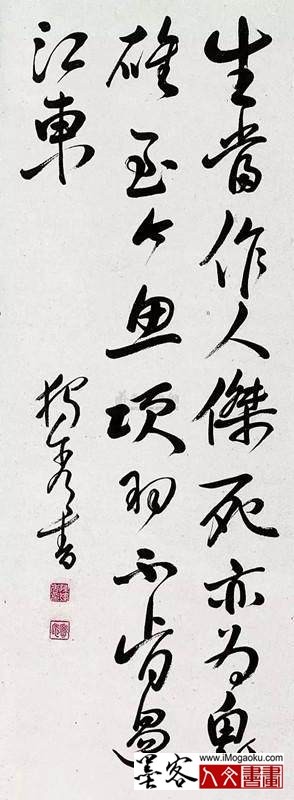 生當作人傑死亦为鬼
雄至今思項羽不肯過
江東
獨秀書
www.iMogaoku.com
墨客
人文書畫